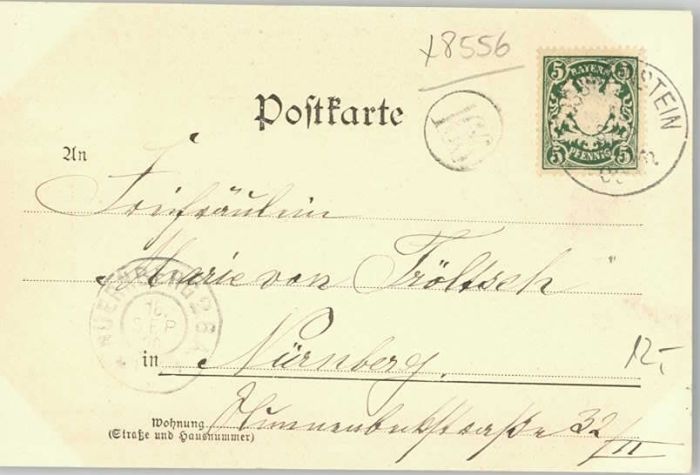 x8556
5 BAYERN 5
5 PFENNIG 5
STEIN
Postkarte
An
Freifräulein
Marie von Tröltsch
NUERNBERG 2 BA
16.
SEP
in Nürnberg.
12,-
Wohnung
(Straße und Hausnummer)
32/II